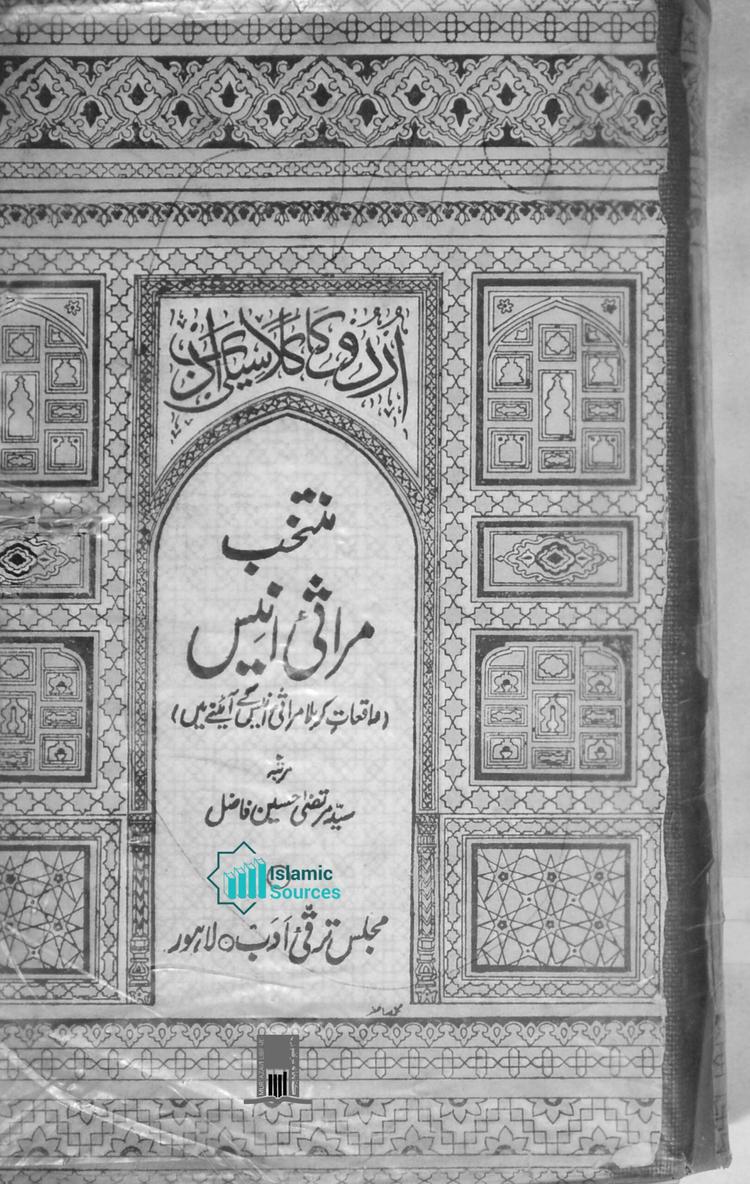 اُردو کا کلاسیکی ادب
منتخب
مراثیٔ انیس
(واقعاتِ کربلا مراثیٔ انیس کے آئینے میں)
مرتبہ
سیّد مرتضیٰ حسین فاضل
Islamic
Sources
مجلس ترقیٔ اَدَب لاہور